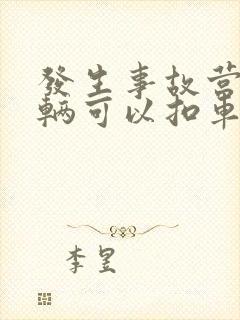 發生事故營
輛可以扣車
李昱